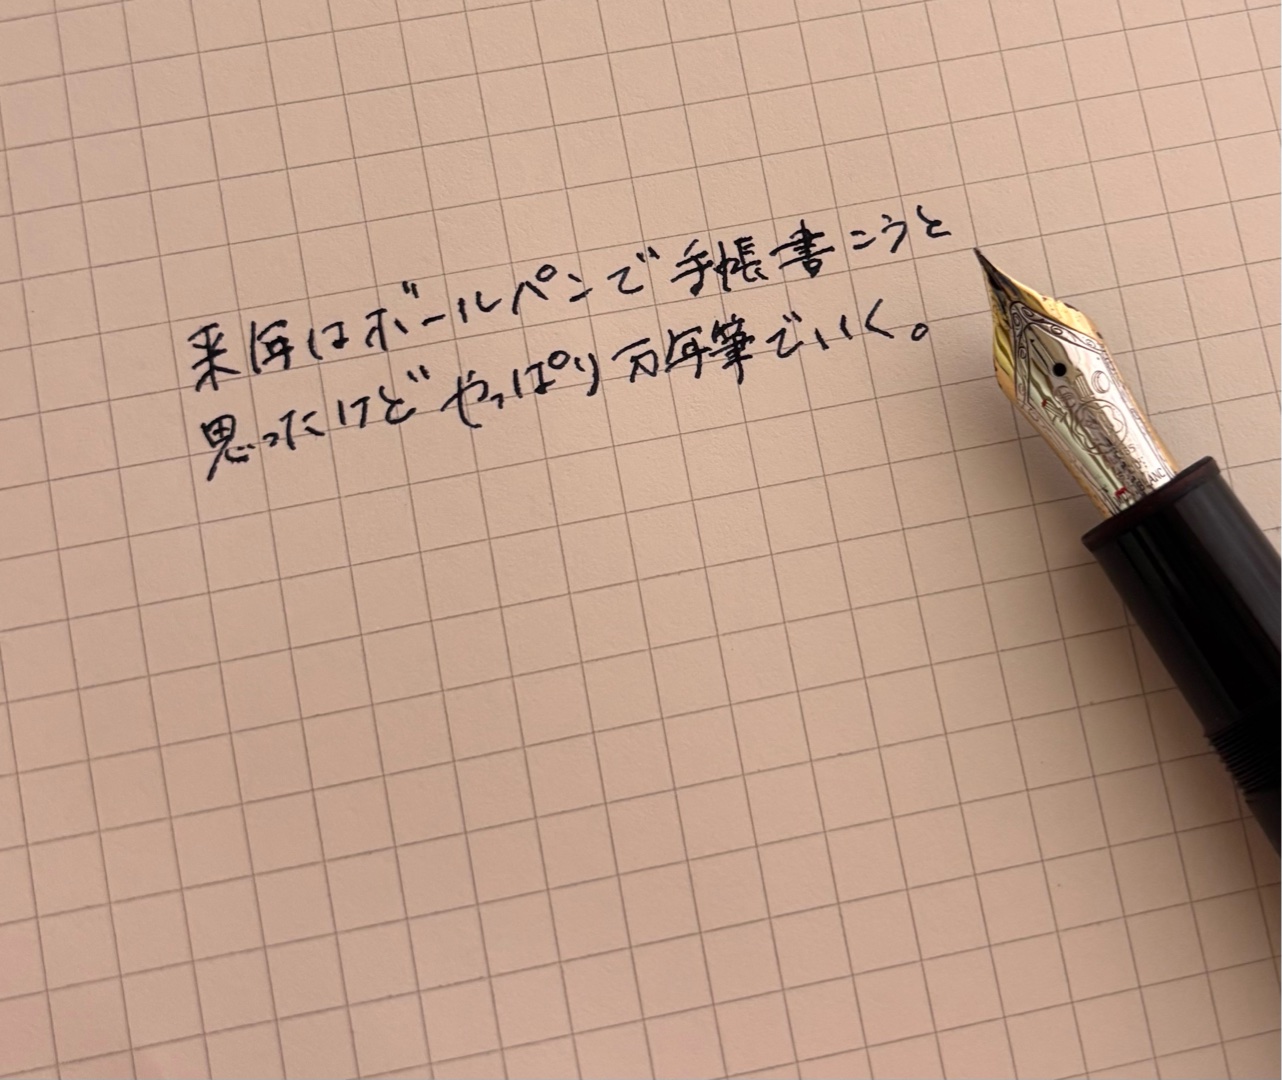 来年はボールペンで手帳書こうと
思ったけどやっぱり万年筆でいく。